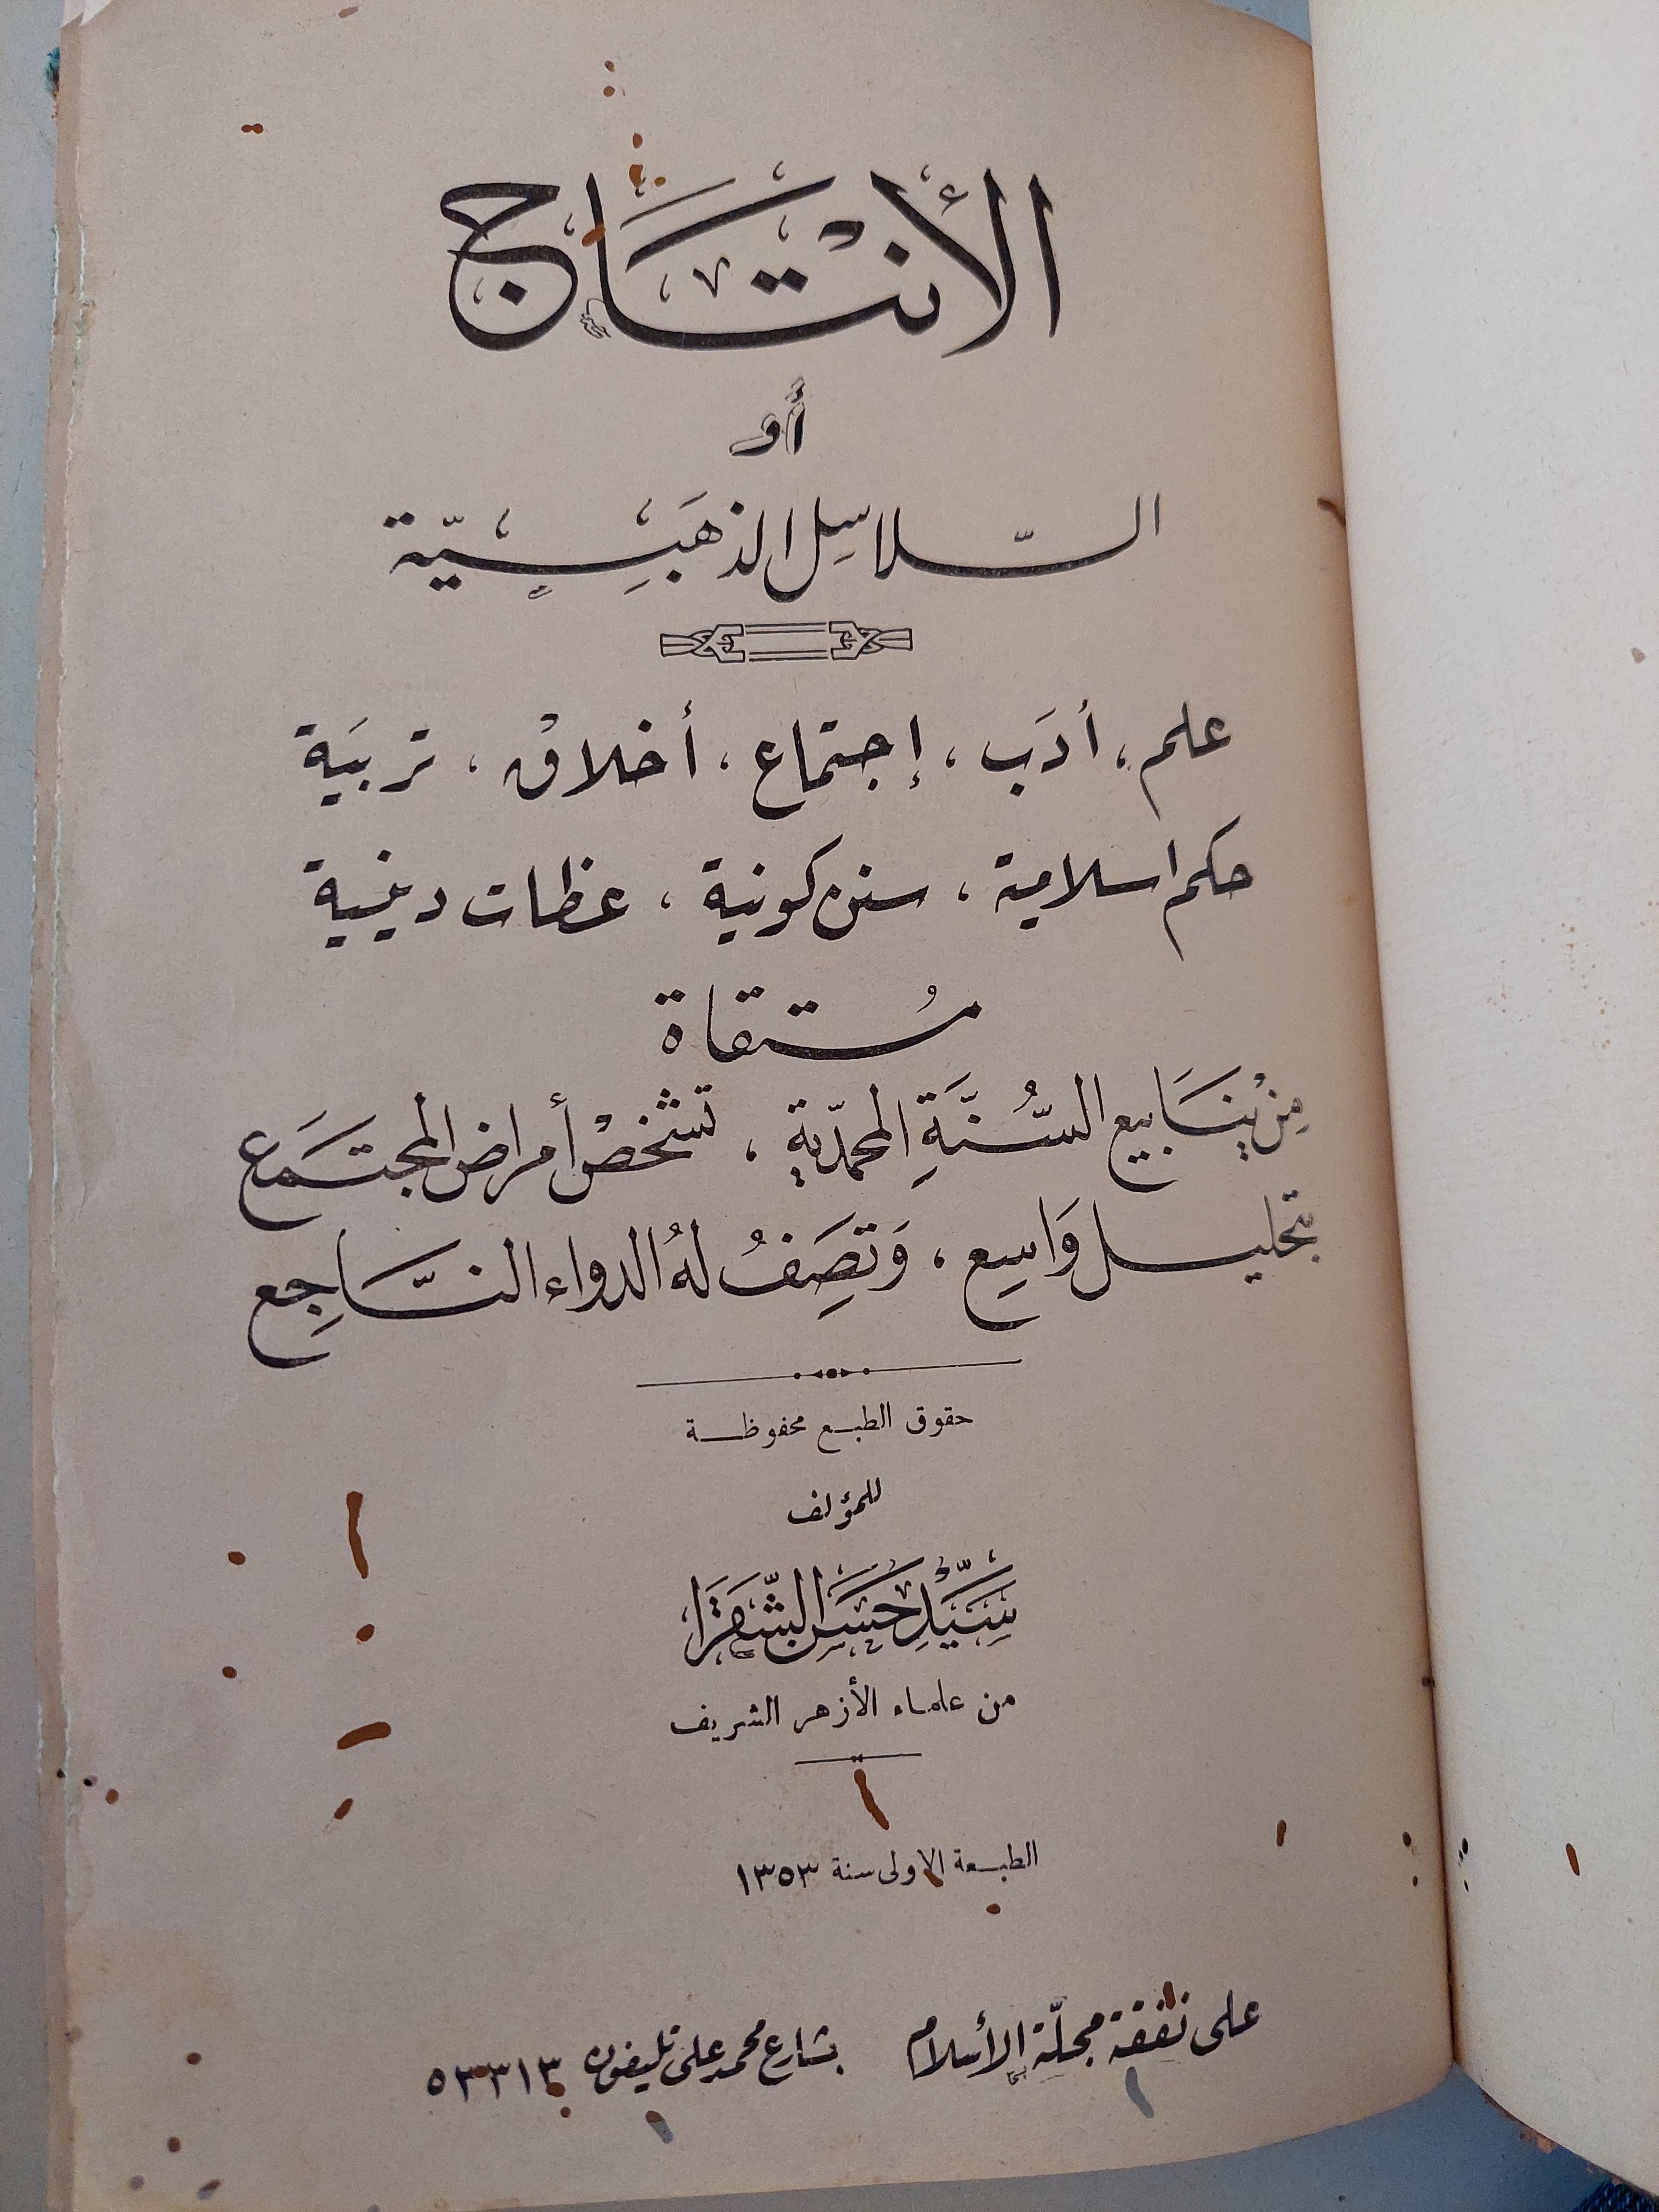 الأنتاج
أو
السّلاسِل الذهَبِيّة
علم، أدَب، إجتماع، أخلاق، تربيَة
حكم اسلامية، سنن كونية، عظات دينية
مُستقاة
مِنْ ينَابيع السُّنَّةِ المحمدّية، تشخصْ أمراض المجتَمَع
بتحليل وَاسِع، وَتصِفُ لهُ الدواء النَّاجِع
حقوق الطبع محفوظة
للمؤلف
سَيِّدْ حَسَن الشَّقرَا
من علماء الأزهر الشريف
الطبعة الاولى سنة ١٣٥٣
على نفقة مجلّة الأسلام بشارع محمد على تليفون ٥٣٣١٣